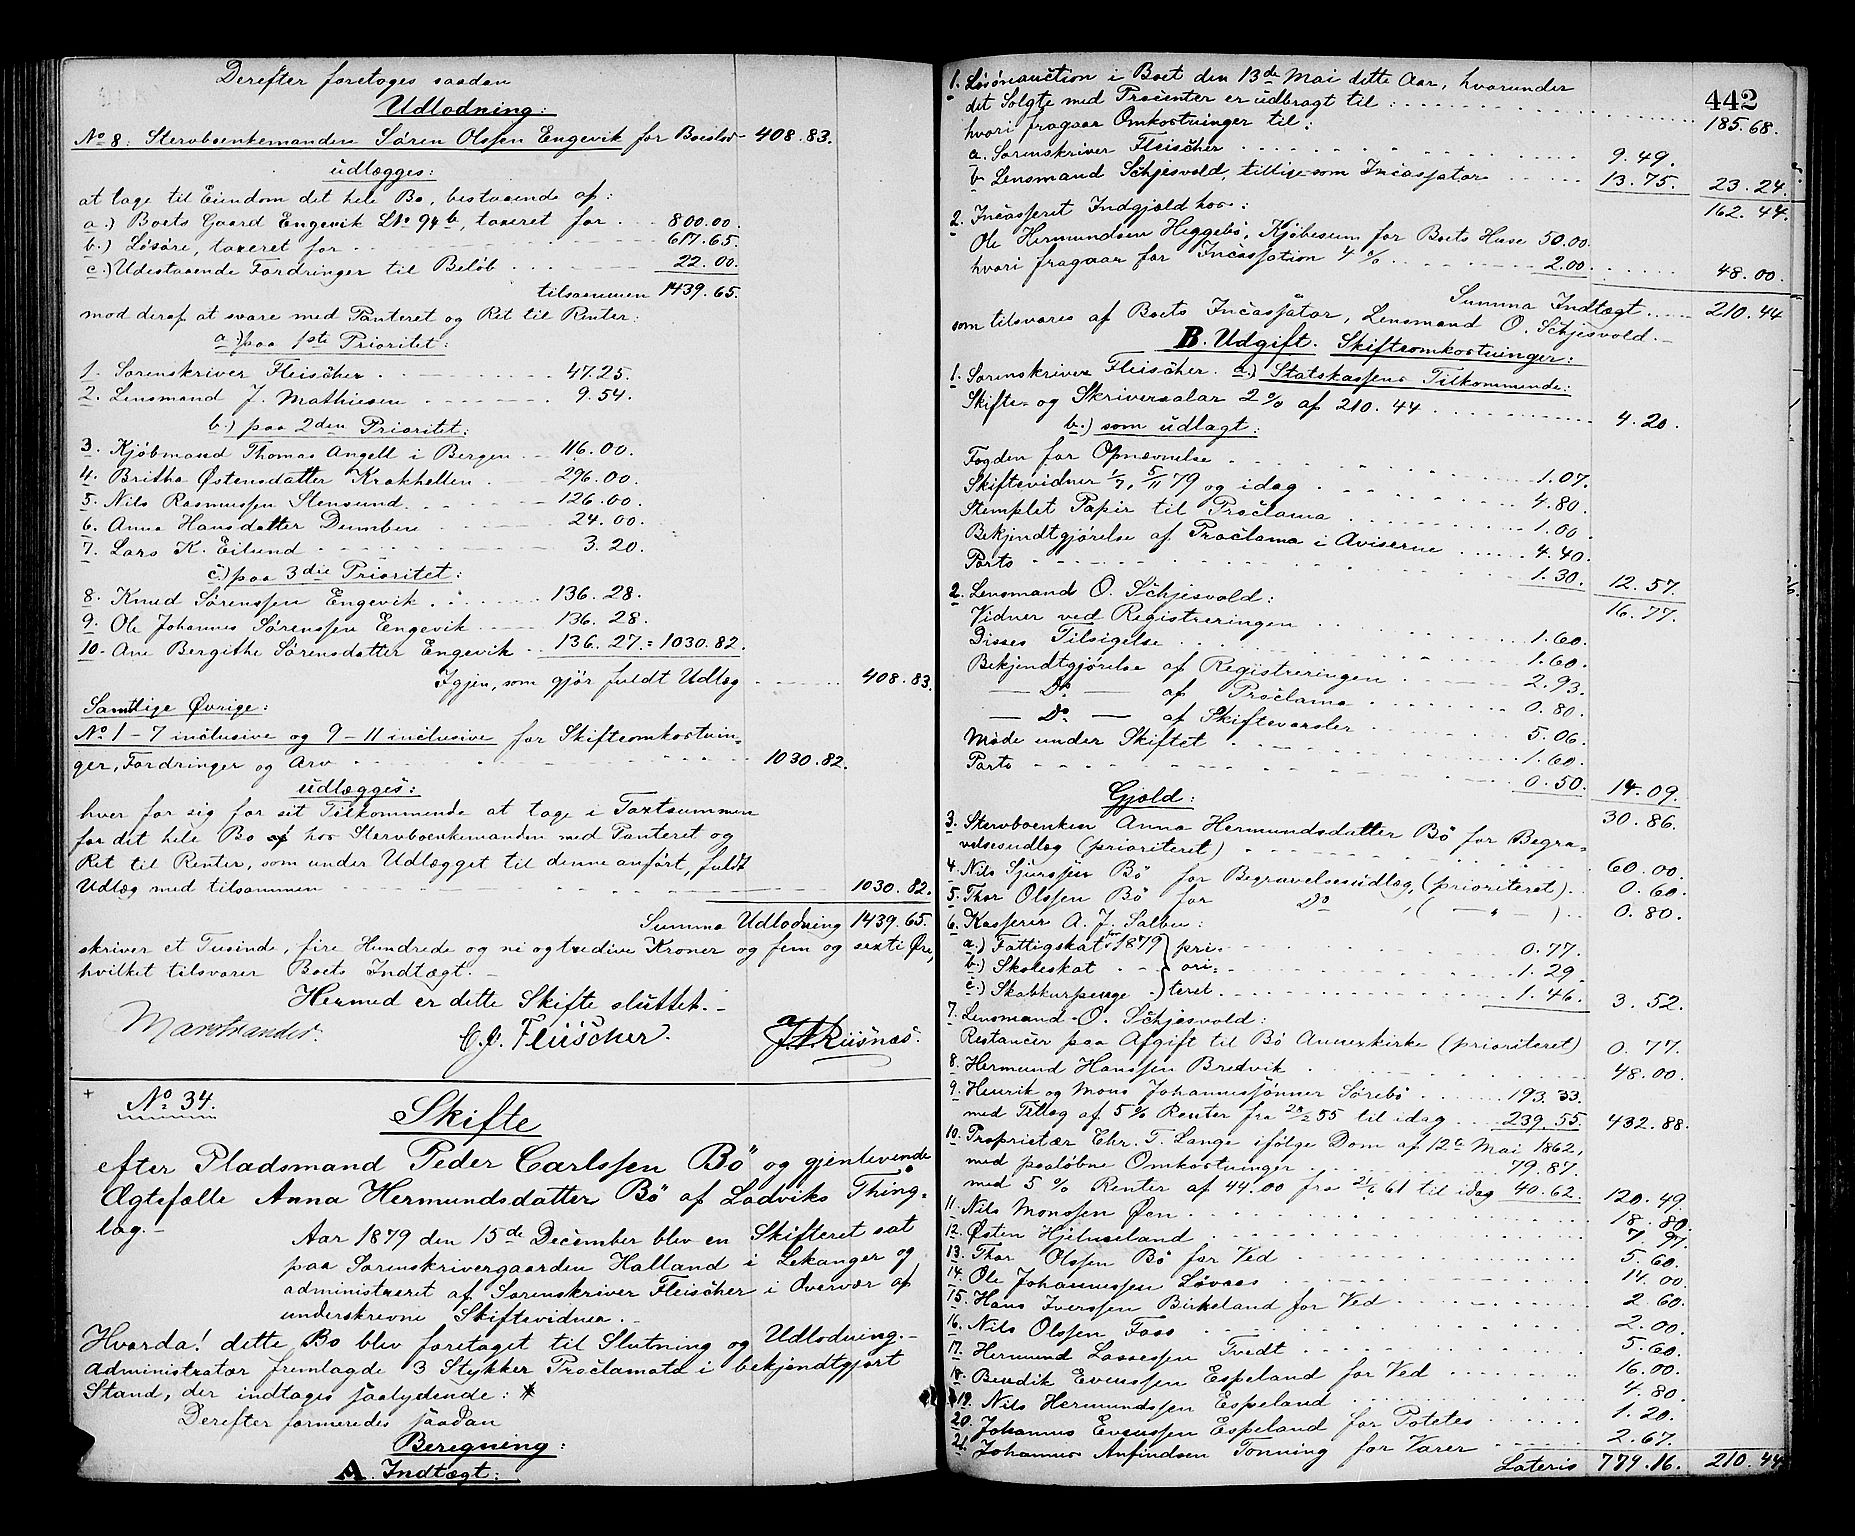 Derefter foretages saadan
Udlodning:
No 8: Stervboenkemanden Søren Olssen Engevik for Boeslod 408.83.
udlægges:
at tage til Eiendom det hele Bo, bestaaende af:
a.) Boets Gaard Engevik LNo 94 b, taxeret for 800.00.
b.) Løsøre, taxeret for 617.65.
c.) Udestaaende Fordringer til Beløb 22.00.
tilsammen 1439.65.
mod deraf at svare med Panteret og Ret til Renter:
a) paa 1ste Prioritet:
1. Sorenskriver Fleischer 47.25.
2. Lensmand J. Mathiesen 9.54.
b.) paa 2den Prioritet:
3. Kjøbmand Thomas Angell i Bergen 116.00.
4. Britha Østensdatter Krakhellen 296.00.
5. Nils Rasmussen Stensund 126.00.
6. Anna Hansdatter Dumben 24.00.
7. Lars K. Eilund 3.20.
c.) paa 3die Prioritet:
8. Knud Sørenssen Engevik 136.28.
9. Ole Johannes Sørenssen Engevik 136.28.
10. Ane Bergithe Sørensdatter Engevik 136.27. = 1030.82.
Igjen, som gjør fuldt Udlæg 408.83.
Samtlige Øvrige:
No 1-7 inclusive og 9-11 inclusive for Skifteomkostnin=
ger, Fordringer og Arv 1030.82.
udlægges:
hver for sig for sit Tilkommende at tage i Taxtsummen
for det hele Bo hos Stervboenkemanden med Panteret og
Ret til Renter, som under Udlægget til denne anført, fuldt
Udlæg med tilsammen 1030.82.
Summa Udlodning 1439.65.
skriver et Tusinde, fire Hundrede og ni og tredive Kroner og fem og sexti Øre,
hvilket tilsvarer Boets Indtægt.
Hermed er dette Skifte sluttet.
Marstrander. C. J. Fleischer. J. A. Riisnæs.
No 34.
Skifte
efter Pladsmand Peder Carlssen Bö og gjenlevende
Ægtefælle Anna Hermundsdatter Bö af Ladviks Thing=
lag.
Aar 1879 den 15de December blev en Skifteret sat
paa Sorenskrivergaarden Halland i Lekanger og
administreret af Sorenskriver Fleischer i Overvær af
underskrevne Skiftevidner.
Hvorda! dette Bo blev foretaget til Slutning og Udlodning.
Administrator fremlagde 3 Stykker Proclamata i bekjendtgjort
Stand, der indtages saalydende: *
Derefter formeredes saadan
Beregning:
A. Indtægt:
442
1. Løsøreauction i Boet den 13de Mai dette Aar, hvorunder
det Solgte med Procenter er udbragt til: 185.68.
hvori fragaar Omkostninger til:
a. Sorenskriver Fleischer 9.49.
b. Lensmand Schjesvold, tillige som Incassator 13.75. 23.24.
162.44.
2. Incasseret Indgjæld hos:
Ole Hermundsen Heggebö, Kjøbesum for Boets Huse 50.00.
hvori fragaar for Incassation 4 % 2.00. 48.00.
Summa Indtægt 210.44
som tilsvares af Boets Incassator, Lensmand O. Schjesvold.
B. Udgift. Skifteomkostninger:
1. Sorenskriver Fleischer. a.) Statskassens Tilkommende:
Skifte- og Skriversalær 2 % af 210.44 4.20.
b.) som udlagt:
Fogden for Opnævnelse 1.07.
Skiftevidner 1/7, 5/11 79 og idag 4.80.
Stemplet Papir til Proclama 1.00.
Bekjendtgjørelse af Proclama i Aviserne 4.40.
Porto 1.30. 12.57.
16.77.
2. Lensmand O. Schjesvold:
Vidner ved Registreringen 1.60.
Disses Tilsigelse 1.60.
Bekjendtgjørelse af Registreringen 2.93.
Do af Proclama 0.80.
Do af Skiftevarsler 5.06.
Møde under Skiftet 1.60.
Porto 0.50. 14.09.
30.86.
Gjæld:
3. Stervboenken Anna Hermundsdatter Bö for Begra=
velsesudlæg (prioriteret) 60.00.
4. Nils Sjurssen Bö for Begravelsesudlæg, (prioriteret) 0.60.
5. Thor Olssen Bö for Do, ( - " - ) 0.80.
6. Kasserer A. J. Salbu:
a.) Fattigskat for 1879 } pri= 0.77.
b.) Skoleskat } ori= 1.29.
c.) Skabkurpenge } teret 1.46. 3.52.
7. Lensmand O. Schjesvold:
Restancer paa Afgift til Bö Annexkirke (prioriteret) 0.77.
8. Hermund Hanssen Bredvik 48.00.
9. Henrik og Mons Johannessønner Sørebö 193.33.
med Tillæg af 5 % Renter fra 28/2 55 til idag 239.55. 432.88.
10. Proprietær Chr. T. Lange ifølge Dom af 12te Mai 1862,
med paaløbne Omkostninger 79.87.
med 5 % Renter af 44.00 fra 21/6 61 til idag 40.62. 120.49.
11. Nils Monssen Øen 18.80.
12. Østen Hjelmeland 7.97.
13. Thor Olssen Bö for Ved 5.60.
14. Ole Johannessen Løvaas 14.00.
15. Hans Iverssen Birkeland for Ved 2.60.
16. Nils Olssen Foss 2.00.
17. Hermund Lassessen Tvedt 5.60.
18. Bendik Evenssen Espeland for Ved 16.00.
19. Nils Hermundssen Espeland 4.80.
20. Johannes Evenssen Espeland for Potetes 1.20.
21. Johannes Anfindsen Tonning for Varer 2.67.
Lateris 779.16. 210.44